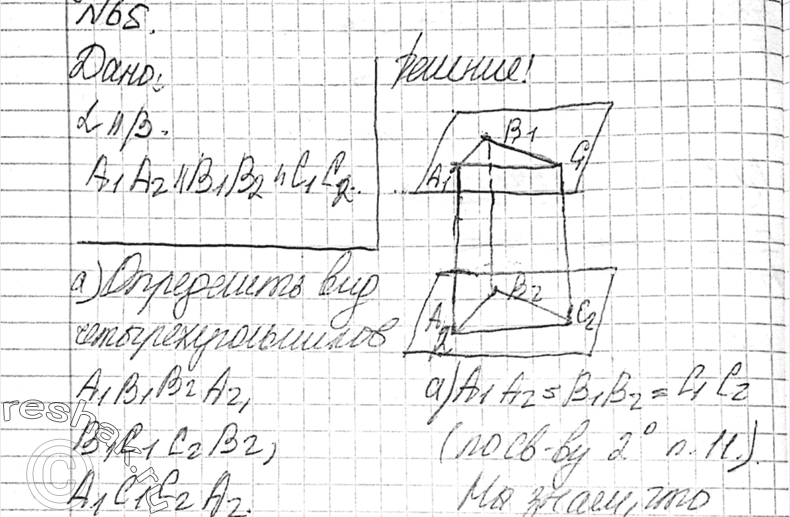 №65.
Дано:
α || β.
A₁A₂ || B₁B₂ || C₁C₂.
а) Определить вид
четырехугольников
A₁B₁B₂A₂,
B₁C₁C₂B₂,
A₁C₁C₂A₂.
Решение:
B₁
A₁ C₁
B₂
A₂ C₂
а) A₁A₂ = B₁B₂ = C₁C₂
(по св-ву 2° п. 11.).
Мы знаем, что
reshak.ru